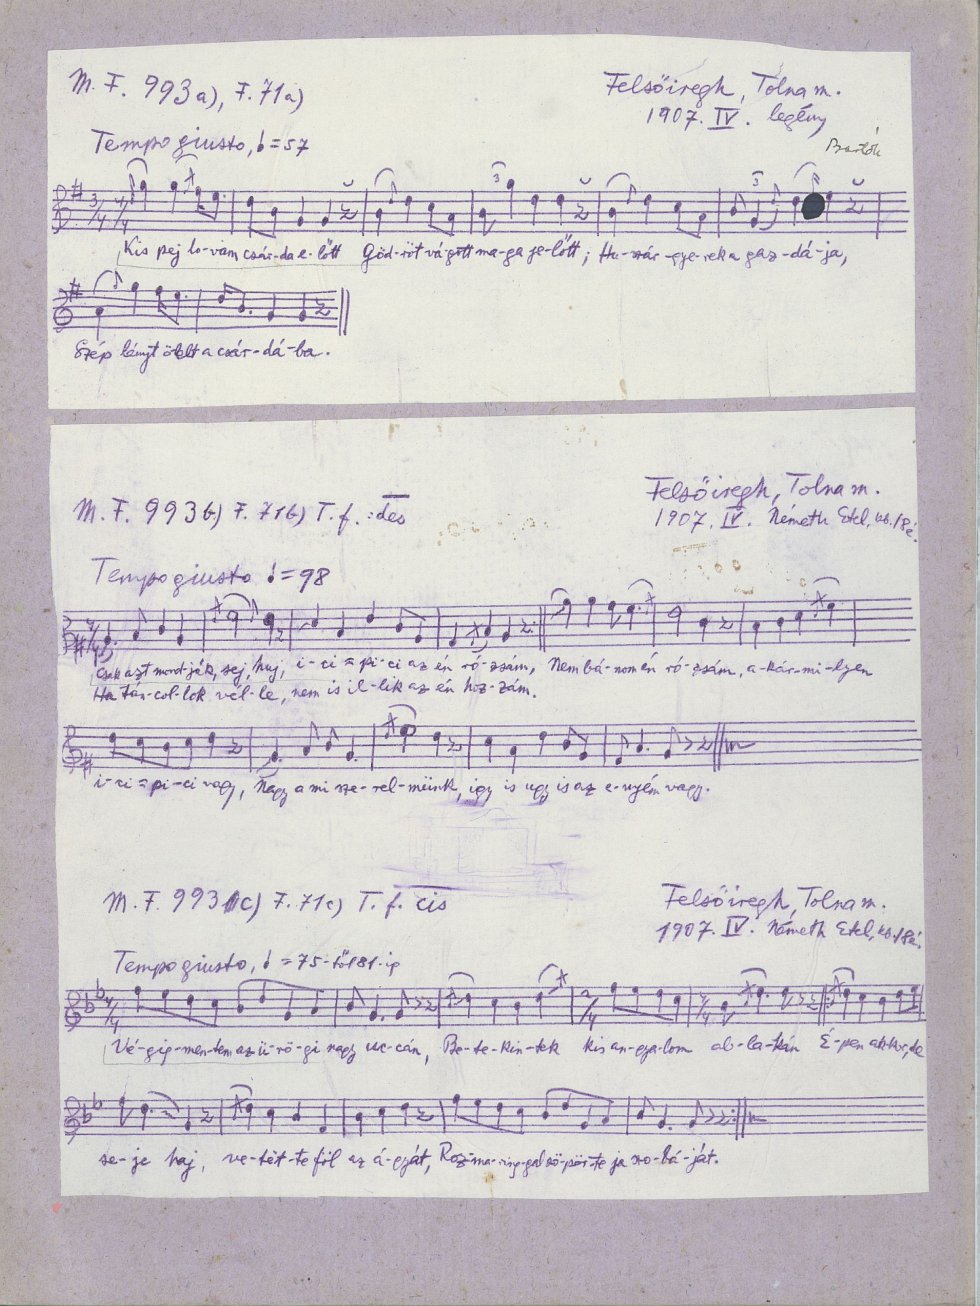 M. F. 993 a), F. 71 a)
Felsőiregh, Tolna m.
1907. IV. legény
Bartók
Tempo giusto, = 57
3/4 4/4
3
3
Kis pej lo-vam csár-da e-lőtt Göd-röt vá-gott ma-ga je-lőtt; Hu-szár-gye-rek a gaz-dá-ja,
Szép lányt ölelt a csár-dá-ba.
M. F. 993 b) F. 71 b) T. f. : des
Felsőiregh, Tolna m.
1907. IV. Németh Etel, kb. 18 é.
Tempo giusto = 98
Csak azt mond-ják, sej, huj, i-ci = pi-ci az én ró-zsám, Nem bá-nom én ró-zsám, a-kár-mi-lyen
Ha tán-col-lok vél-le, nem is il-lik az én hoz-zám.
i-ci = pi-ci vagy, Nagy a mi sze-rel-münk, igy is ugy is az e-nyém vagy.
M. F. 993 c) F. 71 c) T. f. cis
Felsőiregh, Tolna m.
1907. IV. Németh Etel, kb. 18 é.
Tempo giusto, = 75-től 81-ig
4/4
Vé-gig-men-tem az ü-rö-gi nagy uc-cán, Be-te-kin-tek kis an-gya-lom ab-la-kán É-pen akkor, de
se-je haj, ve-tet-te föl az á-gyát, Roz-ma-ring-gal sö-pör-te ja szo-bá-ját.